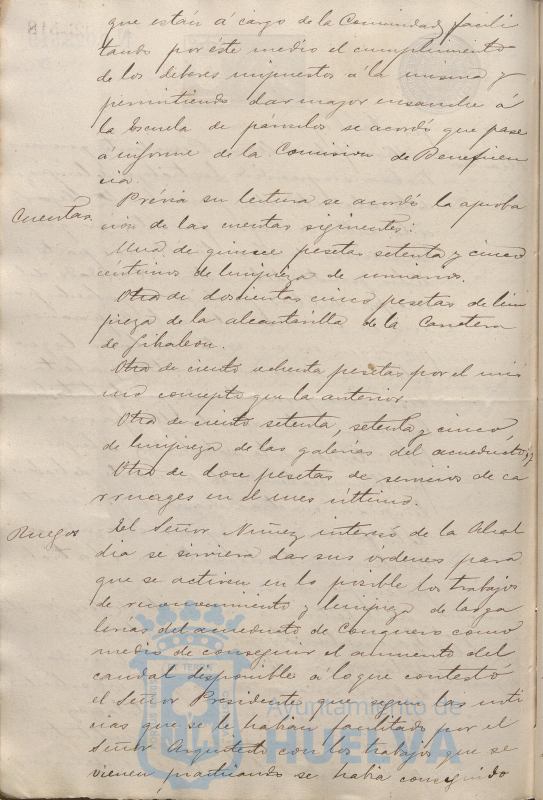 que están á cargo de la Comunidad, facili
tando por éste medio el cumplimiento
de los deberes impuestos á la misma y
permitiendo dar mayor ensanche á
la Escuela de párvulos se acordó que pase
á informe de la Comision de Beneficen
cia.
Cuentas. Prévia su lectura se acordó la aproba
cion de las cuentas siguientes:
Una de quince pesetas setenta y cinco
céntimos de limpieza de urinarios.
Otra de doscientas cinco pesetas de lim
pieza de la alcantarilla de la Carretera
de Gibraleon.
Otra de ciento ochenta pesetas por el mis
mo concepto que la anterior.
Otra de ciento setenta, setenta y cinco,
de limpieza de las galerías del acueducto, y
Otra de doce pesetas de servicios de ca
rruages en el mes último.
Ruegos El Señor Nuñez interesó de la Alcal
dia se sirviera dar sus órdenes para
que se activen en lo posible los trabajos
de reconocimiento y limpieza de las ga
lerias del acueducto de Conquero como
medio de conseguir el aumento del
caudal disponible á lo que contestó
el Señor Presidente que segun las noti
cias que se le habian facilitado por el
Señor Arquitecto con los trabajos que se
vienen practicando se habia conseguido
Ayuntamiento de
HUELVA